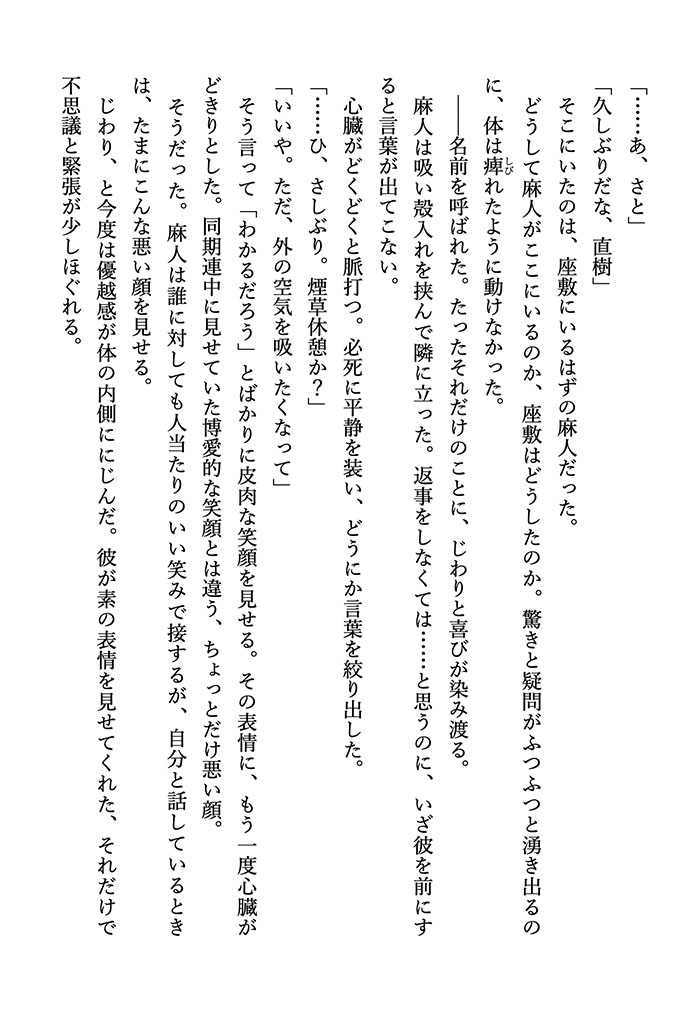 「……あ、さと」
「久しぶりだな、直樹」
　そこにいたのは、座敷にいるはずの麻人だった。
　どうして麻人がここにいるのか、座敷はどうしたのか。驚きと疑問がふつふつと湧き出るの
に、体は痺しびれたように動けなかった。
　――名前を呼ばれた。たったそれだけのことに、じわりと喜びが染み渡る。
　麻人は吸い殻入れを挟んで隣に立った。返事をしなくては……と思うのに、いざ彼を前にす
ると言葉が出てこない。
　心臓がどくどくと脈打つ。必死に平静を装い、どうにか言葉を絞り出した。
「……ひ、さしぶり。煙草休憩か？」
「いいや。ただ、外の空気を吸いたくなって」
　そう言って「わかるだろう」とばかりに皮肉な笑顔を見せる。その表情に、もう一度心臓が
どきりとした。同期連中に見せていた博愛的な笑顔とは違う、ちょっとだけ悪い顔。
　そうだった。麻人は誰に対しても人当たりのいい笑みで接するが、自分と話しているとき
は、たまにこんな悪い顔を見せる。
　じわり、と今度は優越感が体の内側ににじんだ。彼が素の表情を見せてくれた、それだけで
不思議と緊張が少しほぐれる。